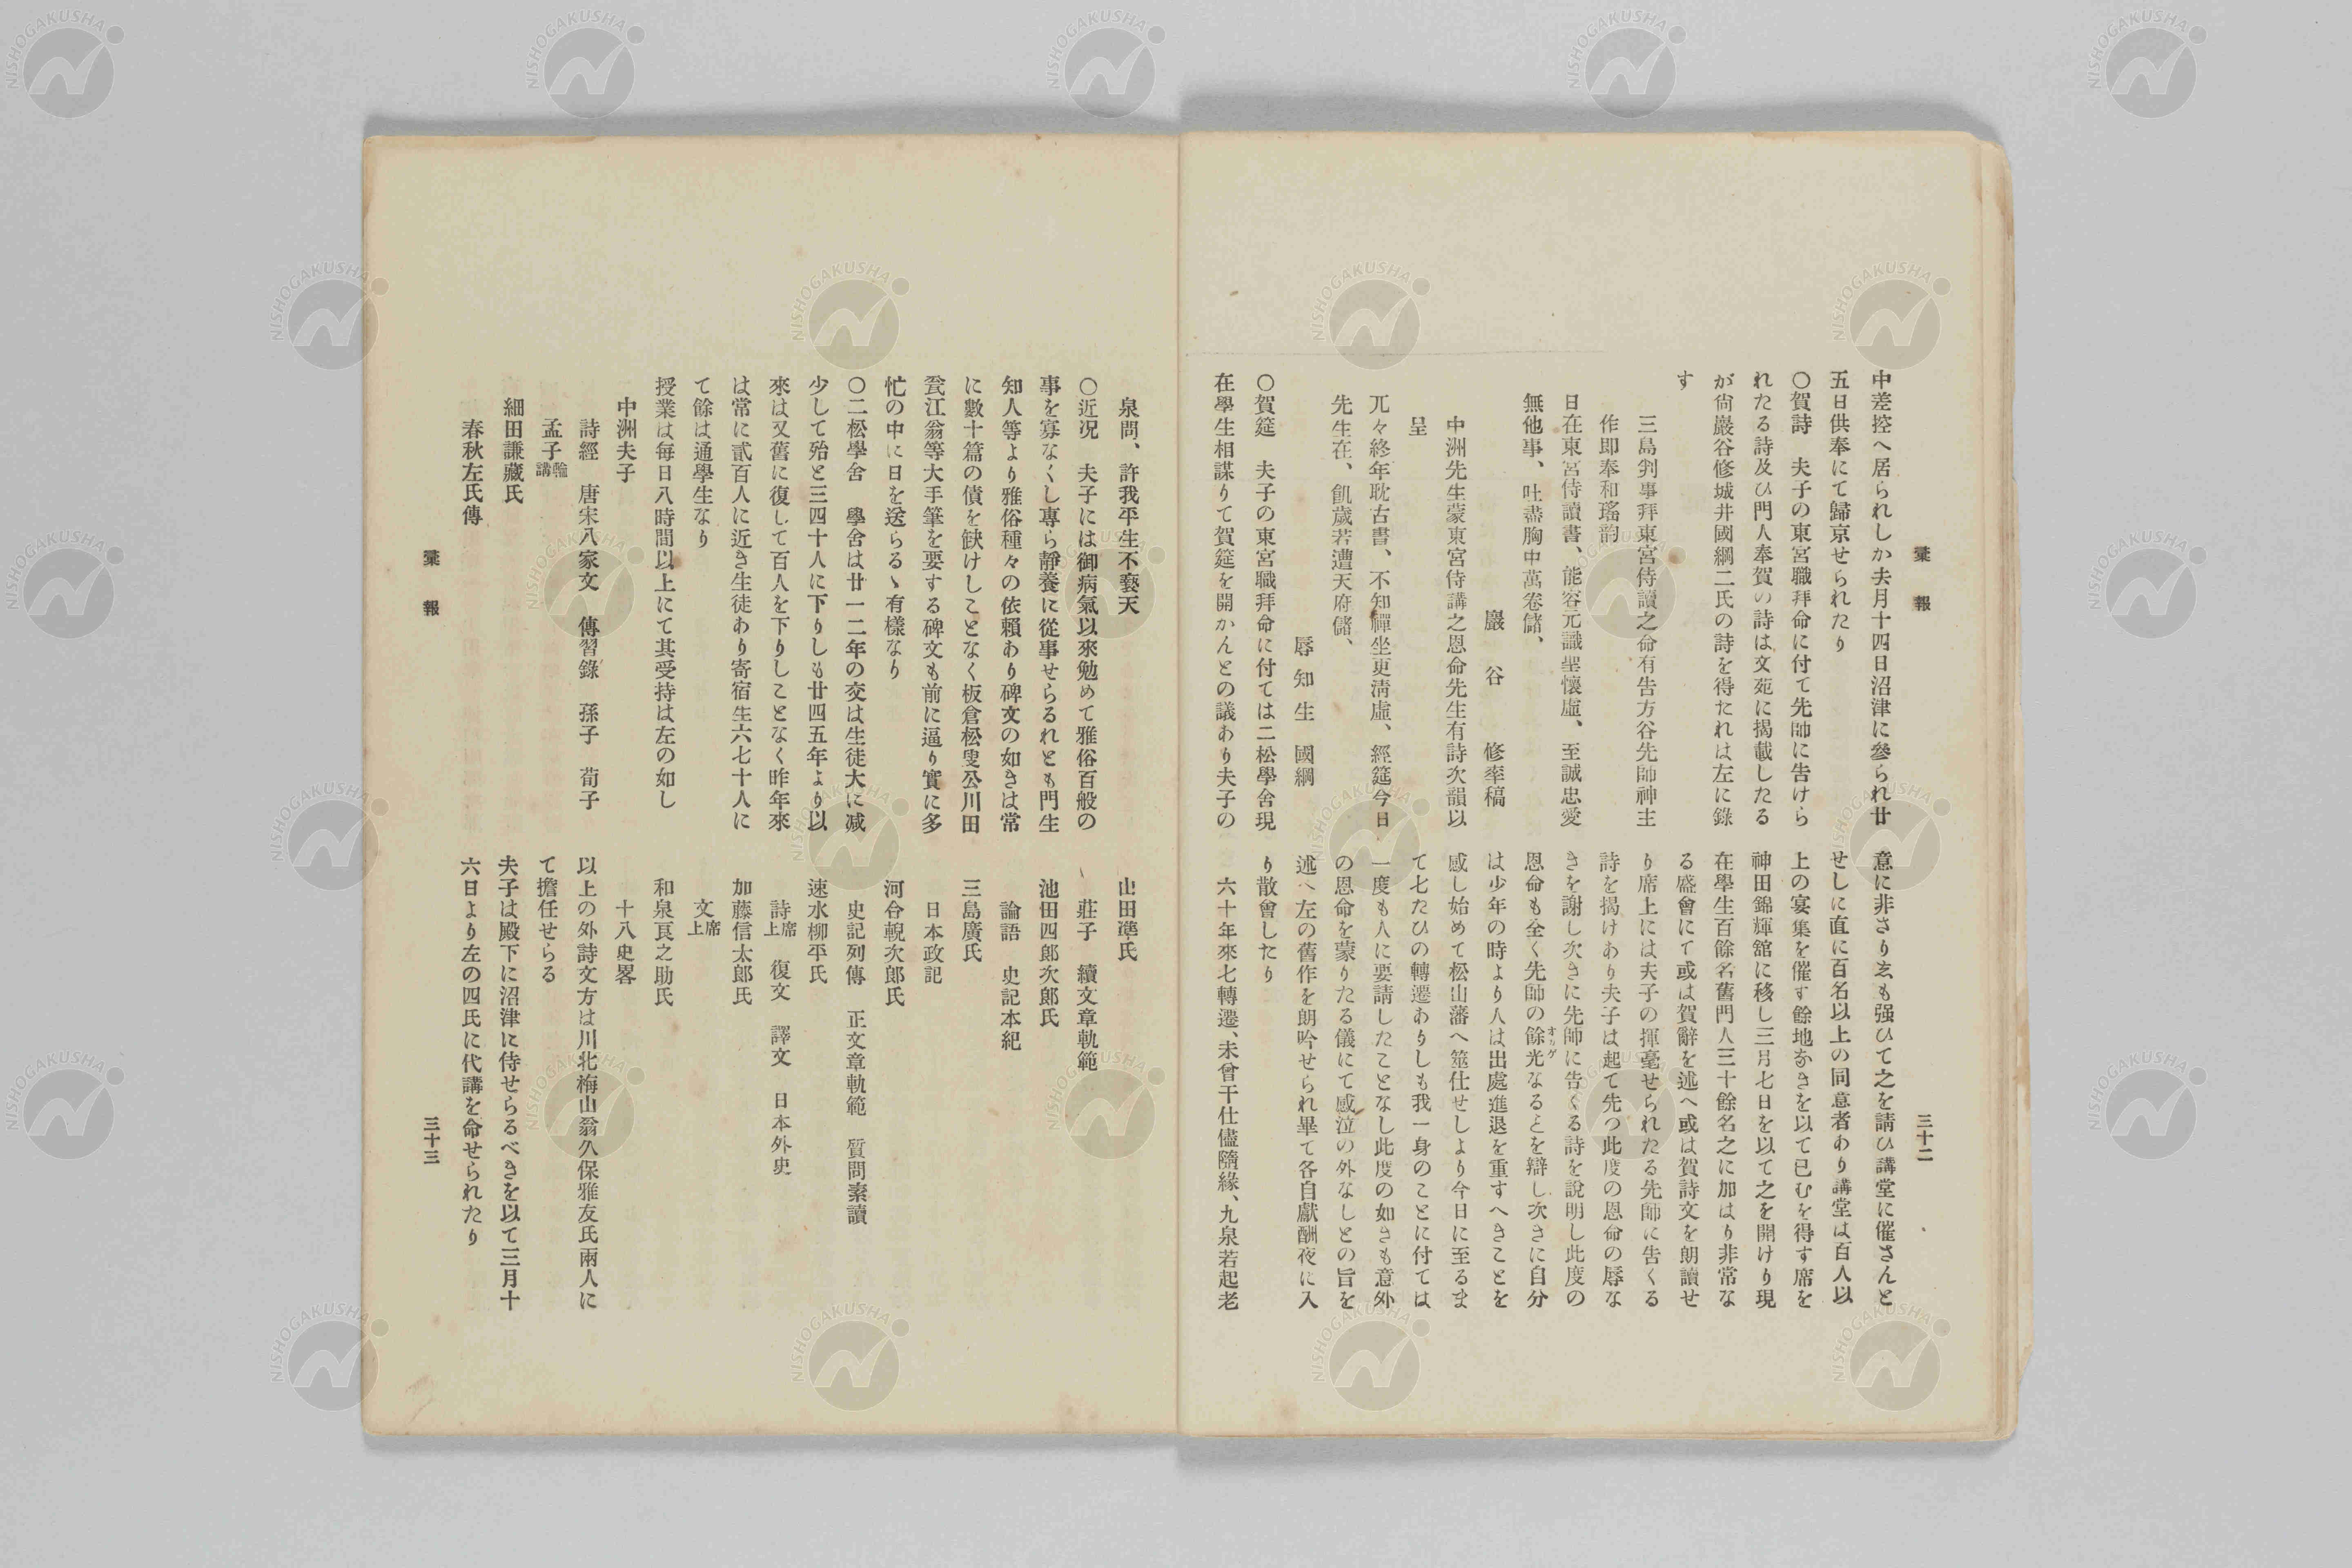 彙報
三十二
中差控へ居られしか去月十四日沼津に參られ廿
五日供奉にて歸京せられたり
〇賀詩　夫子の東宮職拜命に付て先師に告けら
れたる詩及ひ門人奉賀の詩は文苑に揭載したる
が尙巖谷修城井國綱二氏の詩を得たれは左に錄
す
三島判事拜東宮侍讀之命有告方谷先師神主
作即奉和瑤韵
日在東宮侍讀書、能容元識聖懷虛、至誠忠愛
無他事、吐盡胸中萬卷儲、
巖谷　修率稿
中洲先生蒙東宮侍講之恩命先生有詩次韻以
呈
兀々終年耽古書、不知禪坐更淸虛、經筵今日
先生在、飢歲若遭天府儲、
辱知生　國綱
〇賀筵　夫子の東宮職拜命に付ては二松學舍現
在學生相謀りて賀筵を開かんとの議あり夫子の
意に非さりゑも强ひて之を請ひ講堂に催さんと
せしに直に百名以上の同意者あり講堂は百人以
上の宴集を催す餘地なきを以て已むを得す席を
神田錦輝舘に移し三月七日を以て之を開けり現
在學生百餘名舊門人三十餘名之に加はり非常な
る盛會にて或は賀辭を述へ或は賀詩文を朗讀せ
り席上には夫子の揮毫せられたる先師に吿くる
詩を揭けあり夫子は起て先つ此度の恩命の辱な
きを謝し次きに先師に告くる詩を說明し此度の
恩命も全く先師の餘光なるとを辯し次きに自分
オカゲ
は少年の時より人は出處進退を重すへきことを
感し始めて松山藩へ筮仕せしより今日に至るま
て七たひの轉遷ありしも我一身のことに付ては
一度も人に要請したことなし此度の如きも意外
の恩命を蒙りたる儀にて感泣の外なしとの旨を
述へ左の舊作を朗吟せられ畢て各自獻酬夜に入
り散會したり
六十年來七轉遷、未曾干仕儘隨緣、九泉若起老
泉問、許我平生不褻天
〇近况　夫子には御病氣以來勉めて雅俗百般の
事を寡なくし專ら靜養に從事せらるれとも門生
知人等より雅俗種々の依賴あり碑文の如きは常
に數十篇の債を缺けしことなく板倉松叟公川田
甕江翁等大手筆を要する碑文も前に逼り實に多
忙の中に日を送らるゝ有樣なり
〇二松學舍　學舍は廿一二年の交は生徒大に减
少して殆と三四十人に下りしも廿四五年より以
來は又舊に復して百人を下りしことなく昨年來
は常に貳百人に近き生徒あり寄宿生六七十人に
て餘は通學生なり
授業は每日八時間以上にて其受持は左の如し
中洲夫子
詩經　唐宋八家文　傳習錄　孫子　荀子
孟子輪講
細田謙藏氏
春秋左氏傳
山田準氏
莊子　續文章軌範
池田四郞次郞氏
論語　史記本紀
三島廣氏
日本政記
河合輗次郞氏
史記列傳　正文章軌範　質問素讀
速水柳平氏
詩席上　復文　譯文　日本外史
加藤信太郞氏
文席上
和泉良之助氏
十八史畧
以上の外詩文方は川北梅山翁久保雅友氏兩人に
て擔任せらる
夫子は殿下に沼津に侍せらるべきを以て三月十
六日より左の四氏に代講を命せられたり
彙報
三十三
NISHOGAKUSHA